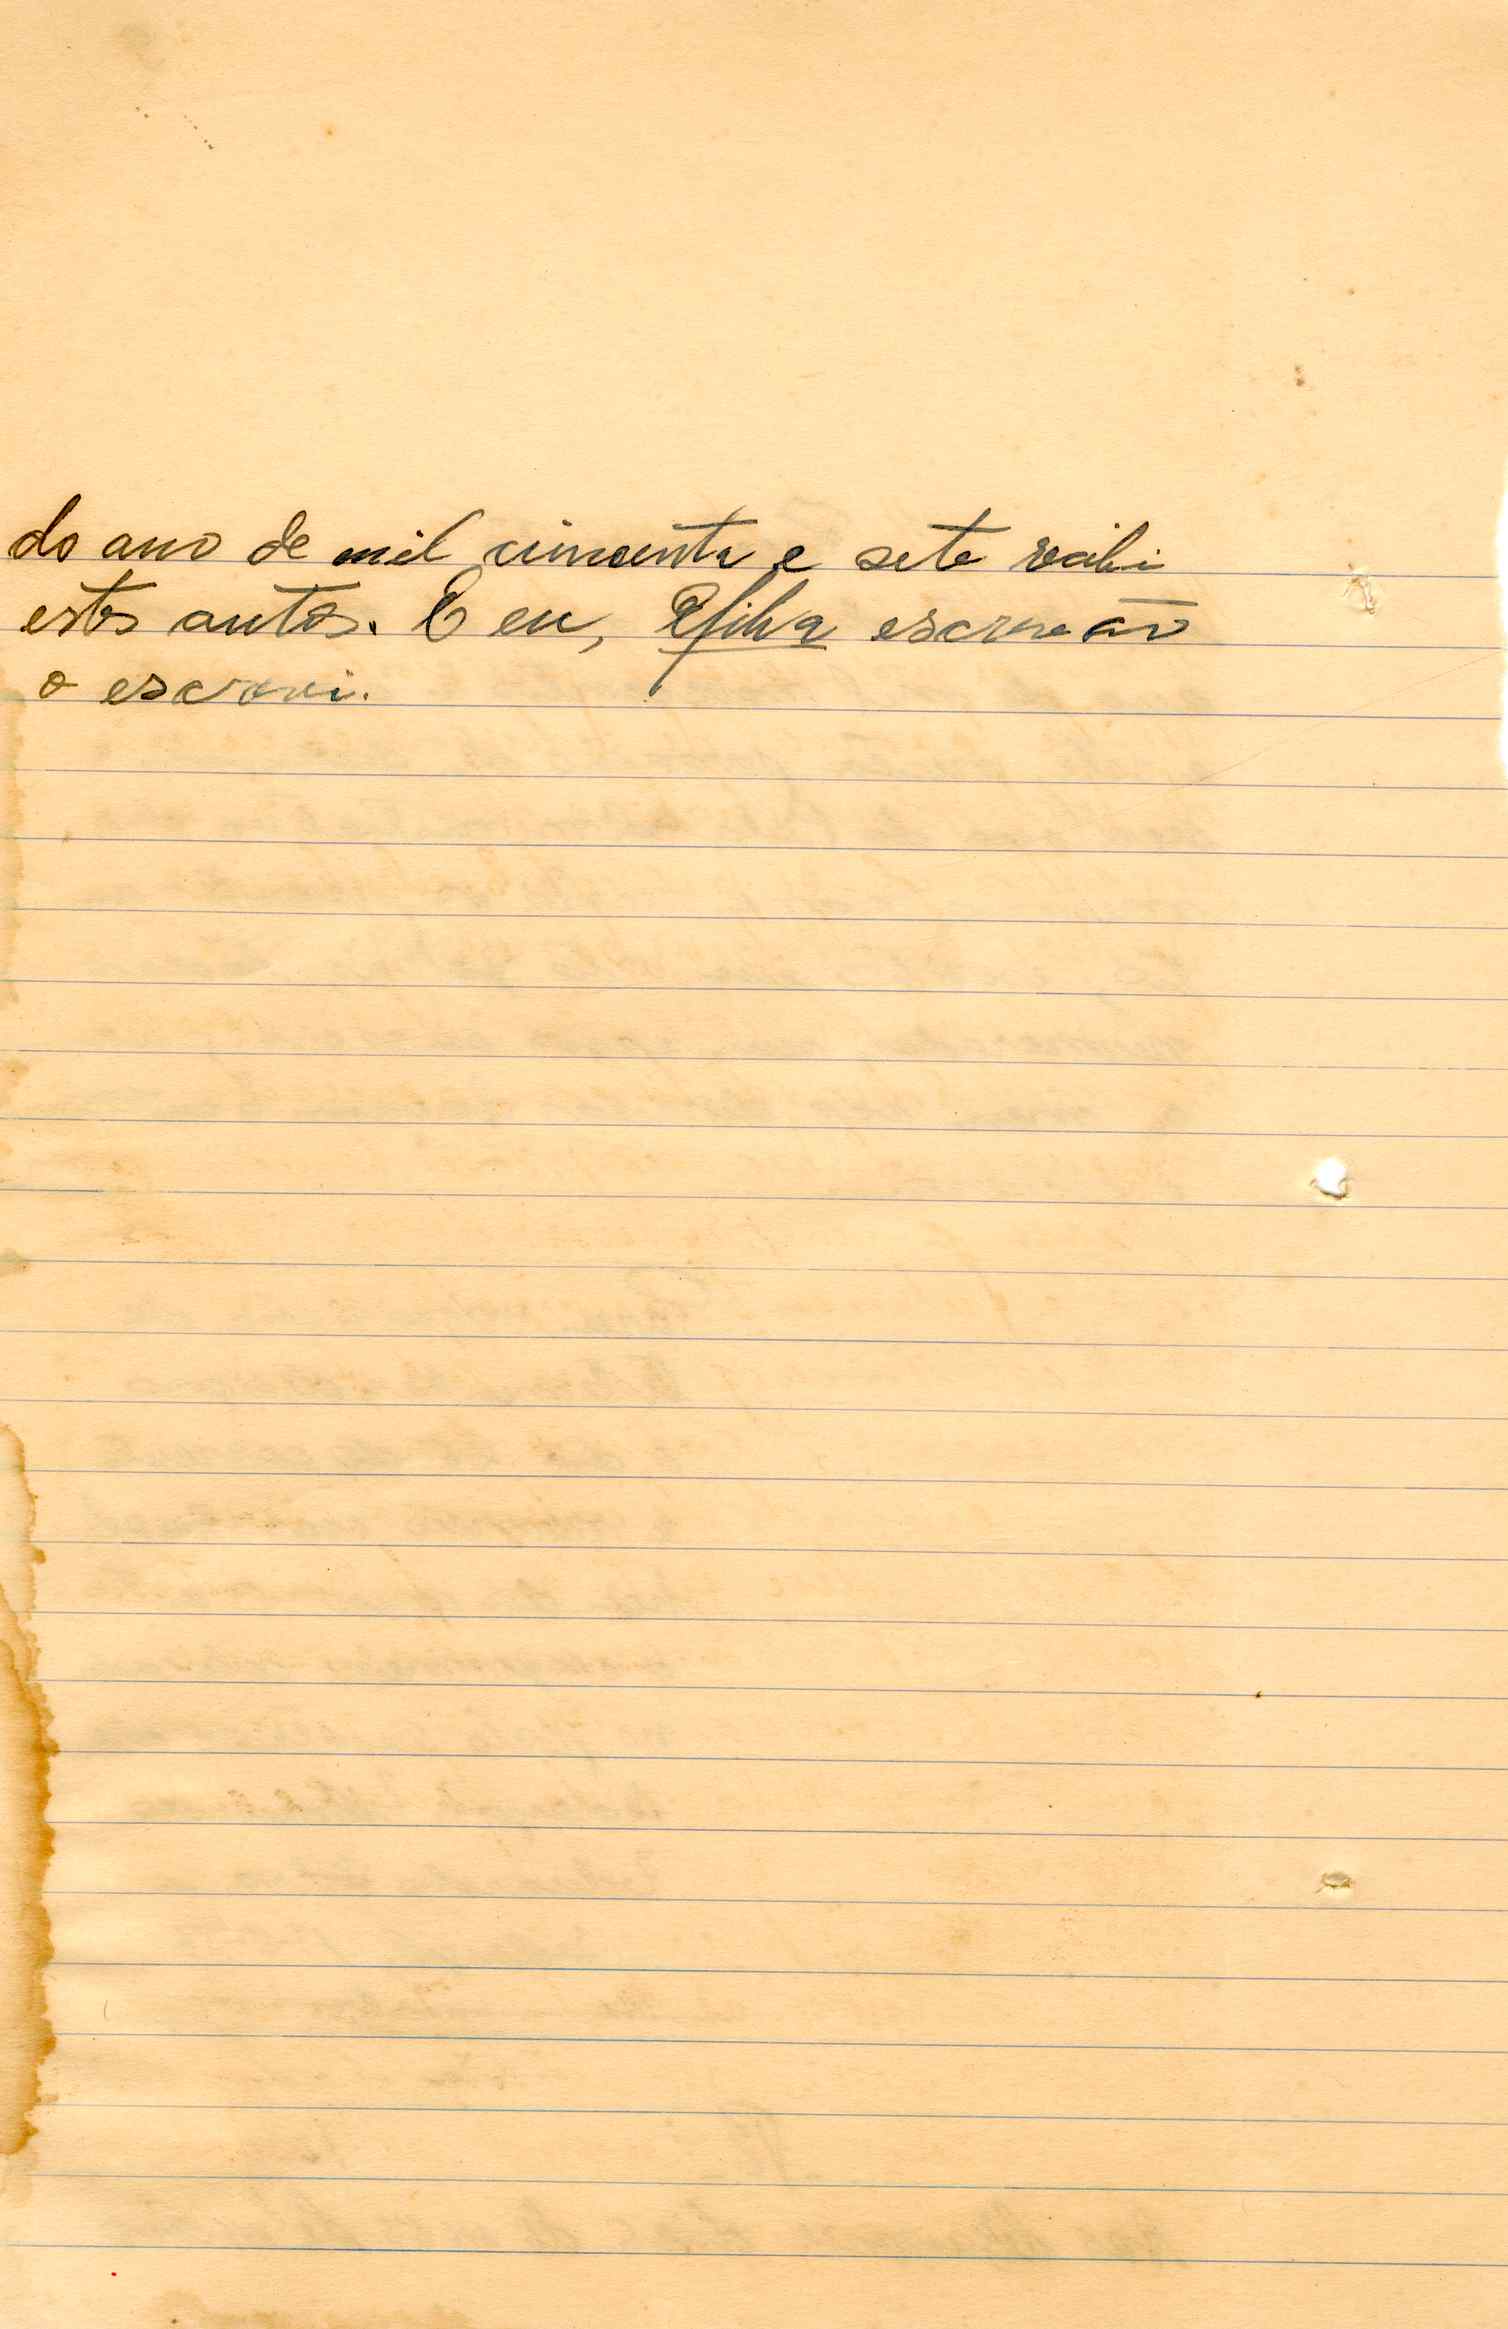 do ano de mil cincoenta e sete recibi
estes autos. E eu, RSilva escrivão
o escrevi.